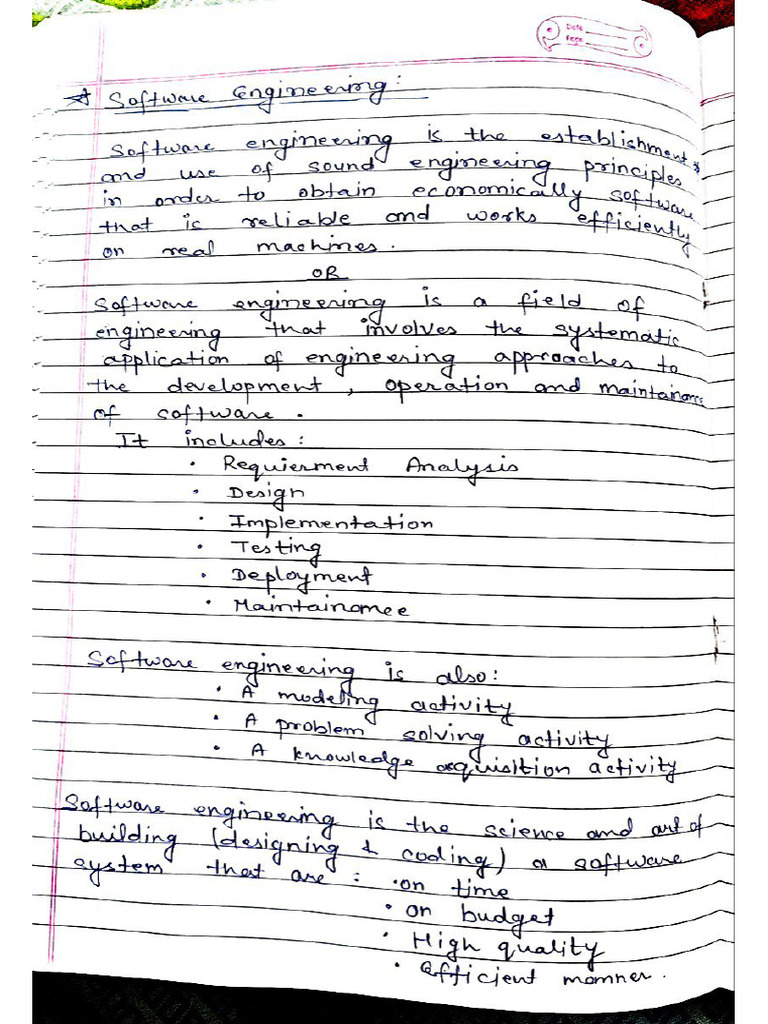 Date
Page
☆ Software Engineering:
Software engineering is the establishment
and use of sound engineering principles
in order to obtain economically software
that is reliable and works efficiently
on real machines.
OR
Software engineering is a field of
engineering that involves the systematic
application of engineering approaches to
the development, operation and maintainance
of software.
It includes:
• Requierment Analysis
• Design
• Implementation
• Testing
• Deployment
• Maintainomee
Software engineering is also:
• A modeling activity
• A problem solving activity
• A knowledge acquisition activity
Software engineering is the science and art of
building (designing & coding) a software
system that are: • on time
• on budget
• High quality
• efficient manner.